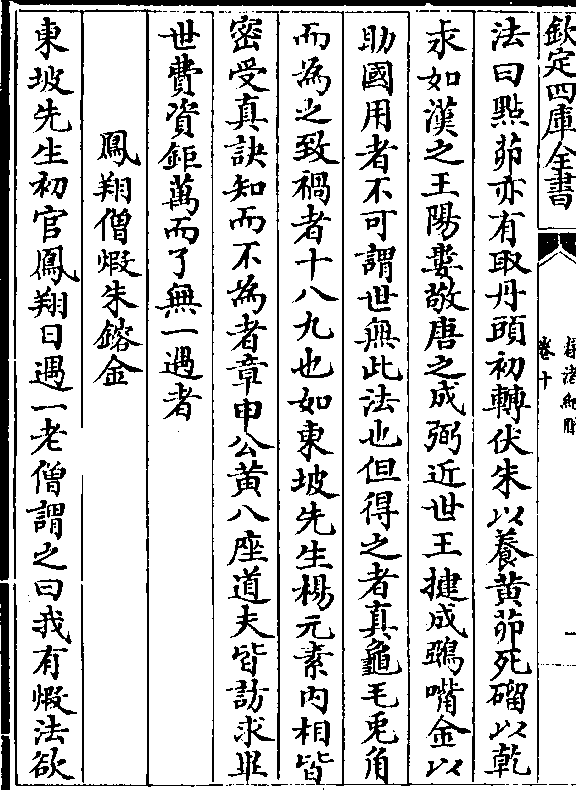 欽定四庫全書
春渚紀聞
卷十
一
法曰點茆亦有取丹頭初轉伏朱以養黄茆死磂以乾
汞如漢之王陽婁敬唐之成弼近世王揵成鵶嘴金以
助國用者不可謂世無此法也但得之者真龜毛兎角
而為之致禍者十八九也如東坡先生楊元素内相皆
密受真訣知而不為者章申公黄八座道夫皆訪求畢
世費資鉅萬而了無一遇者
鳳翔僧煆朱鎔金
東坡先生初官鳳翔日遇一老僧謂之曰我有煆法欲